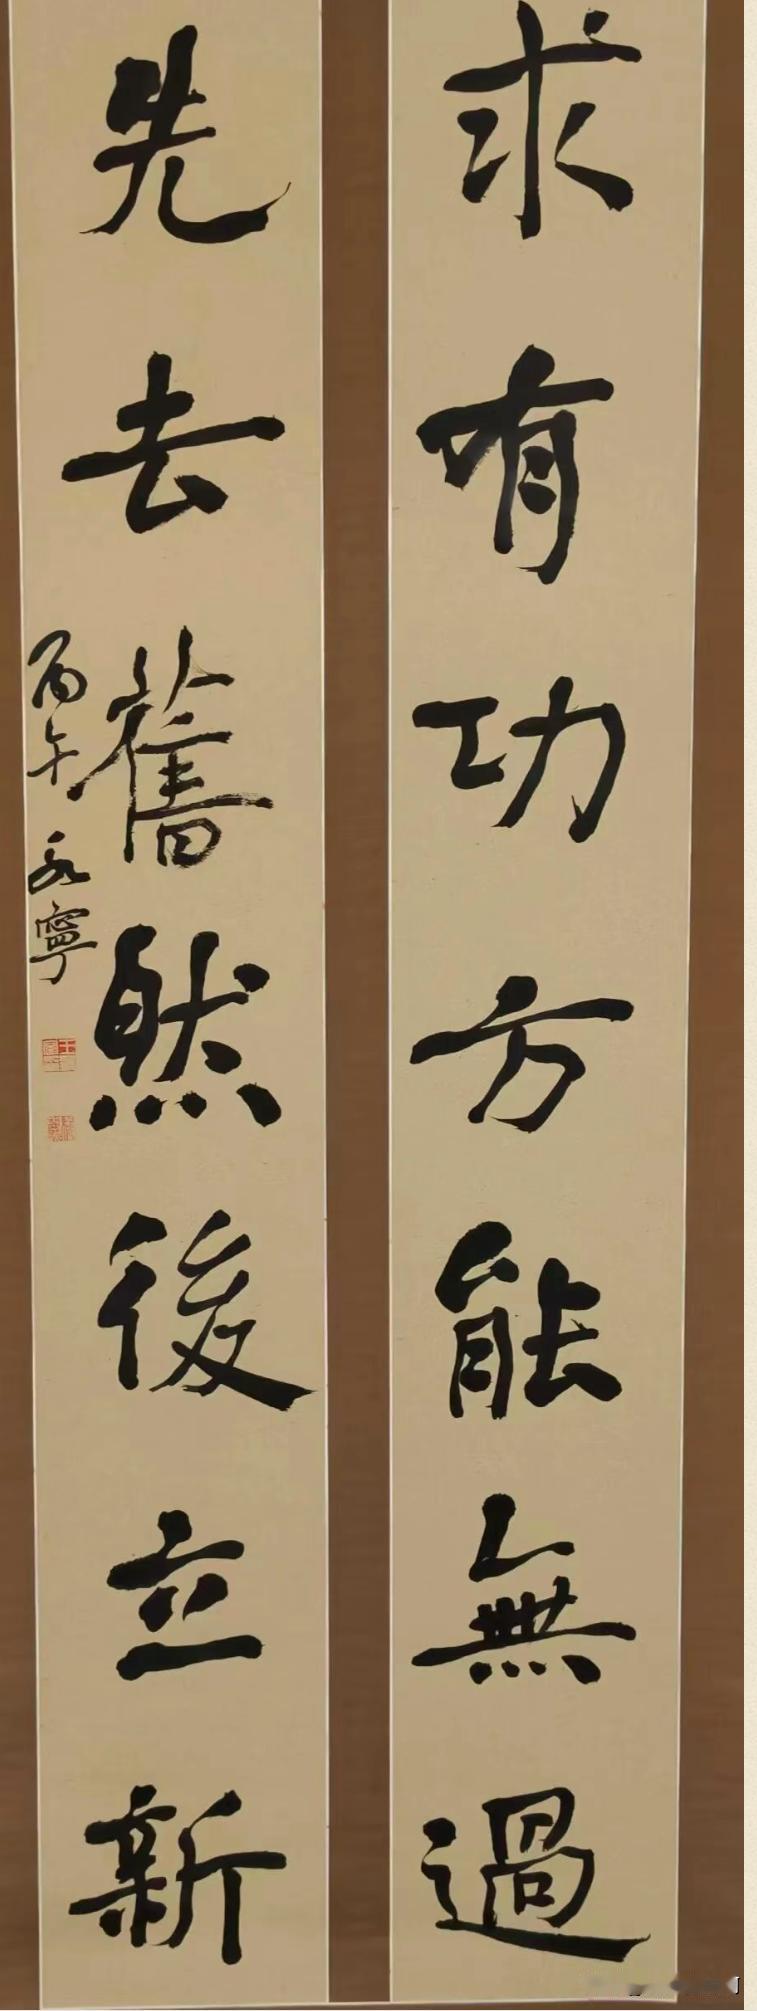 求有功方能無過
先去舊然後立新
丙午永寧